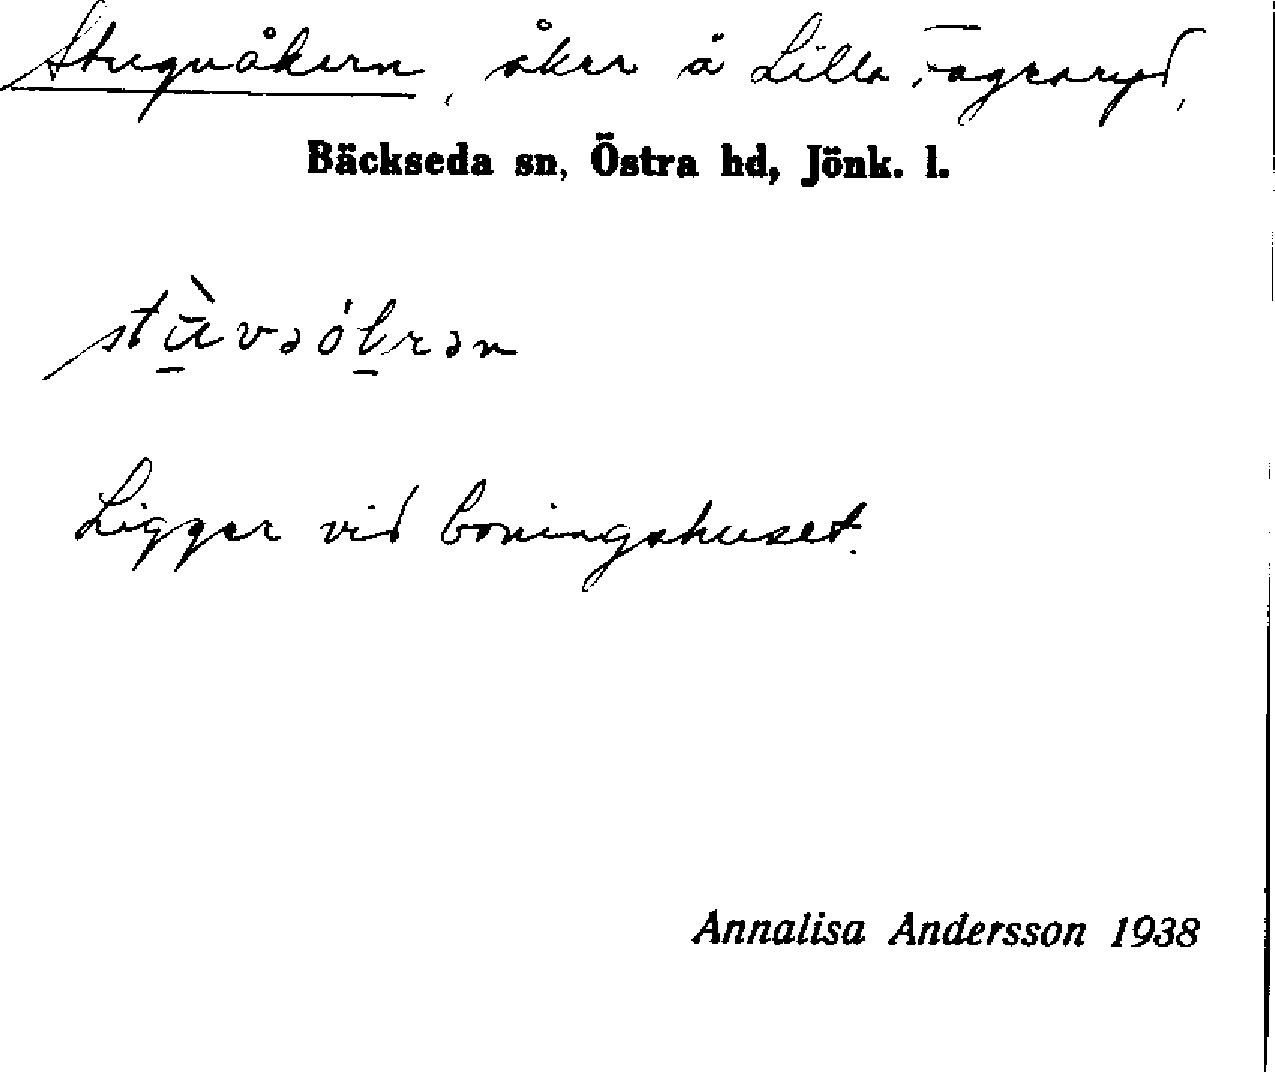 Stuguåkern, åker å Lilla Fagraryd,
Bäckseda sn, Östra hd, Jönk. l.
Ligger vid boningshuset.
Annalisa Andersson 1938